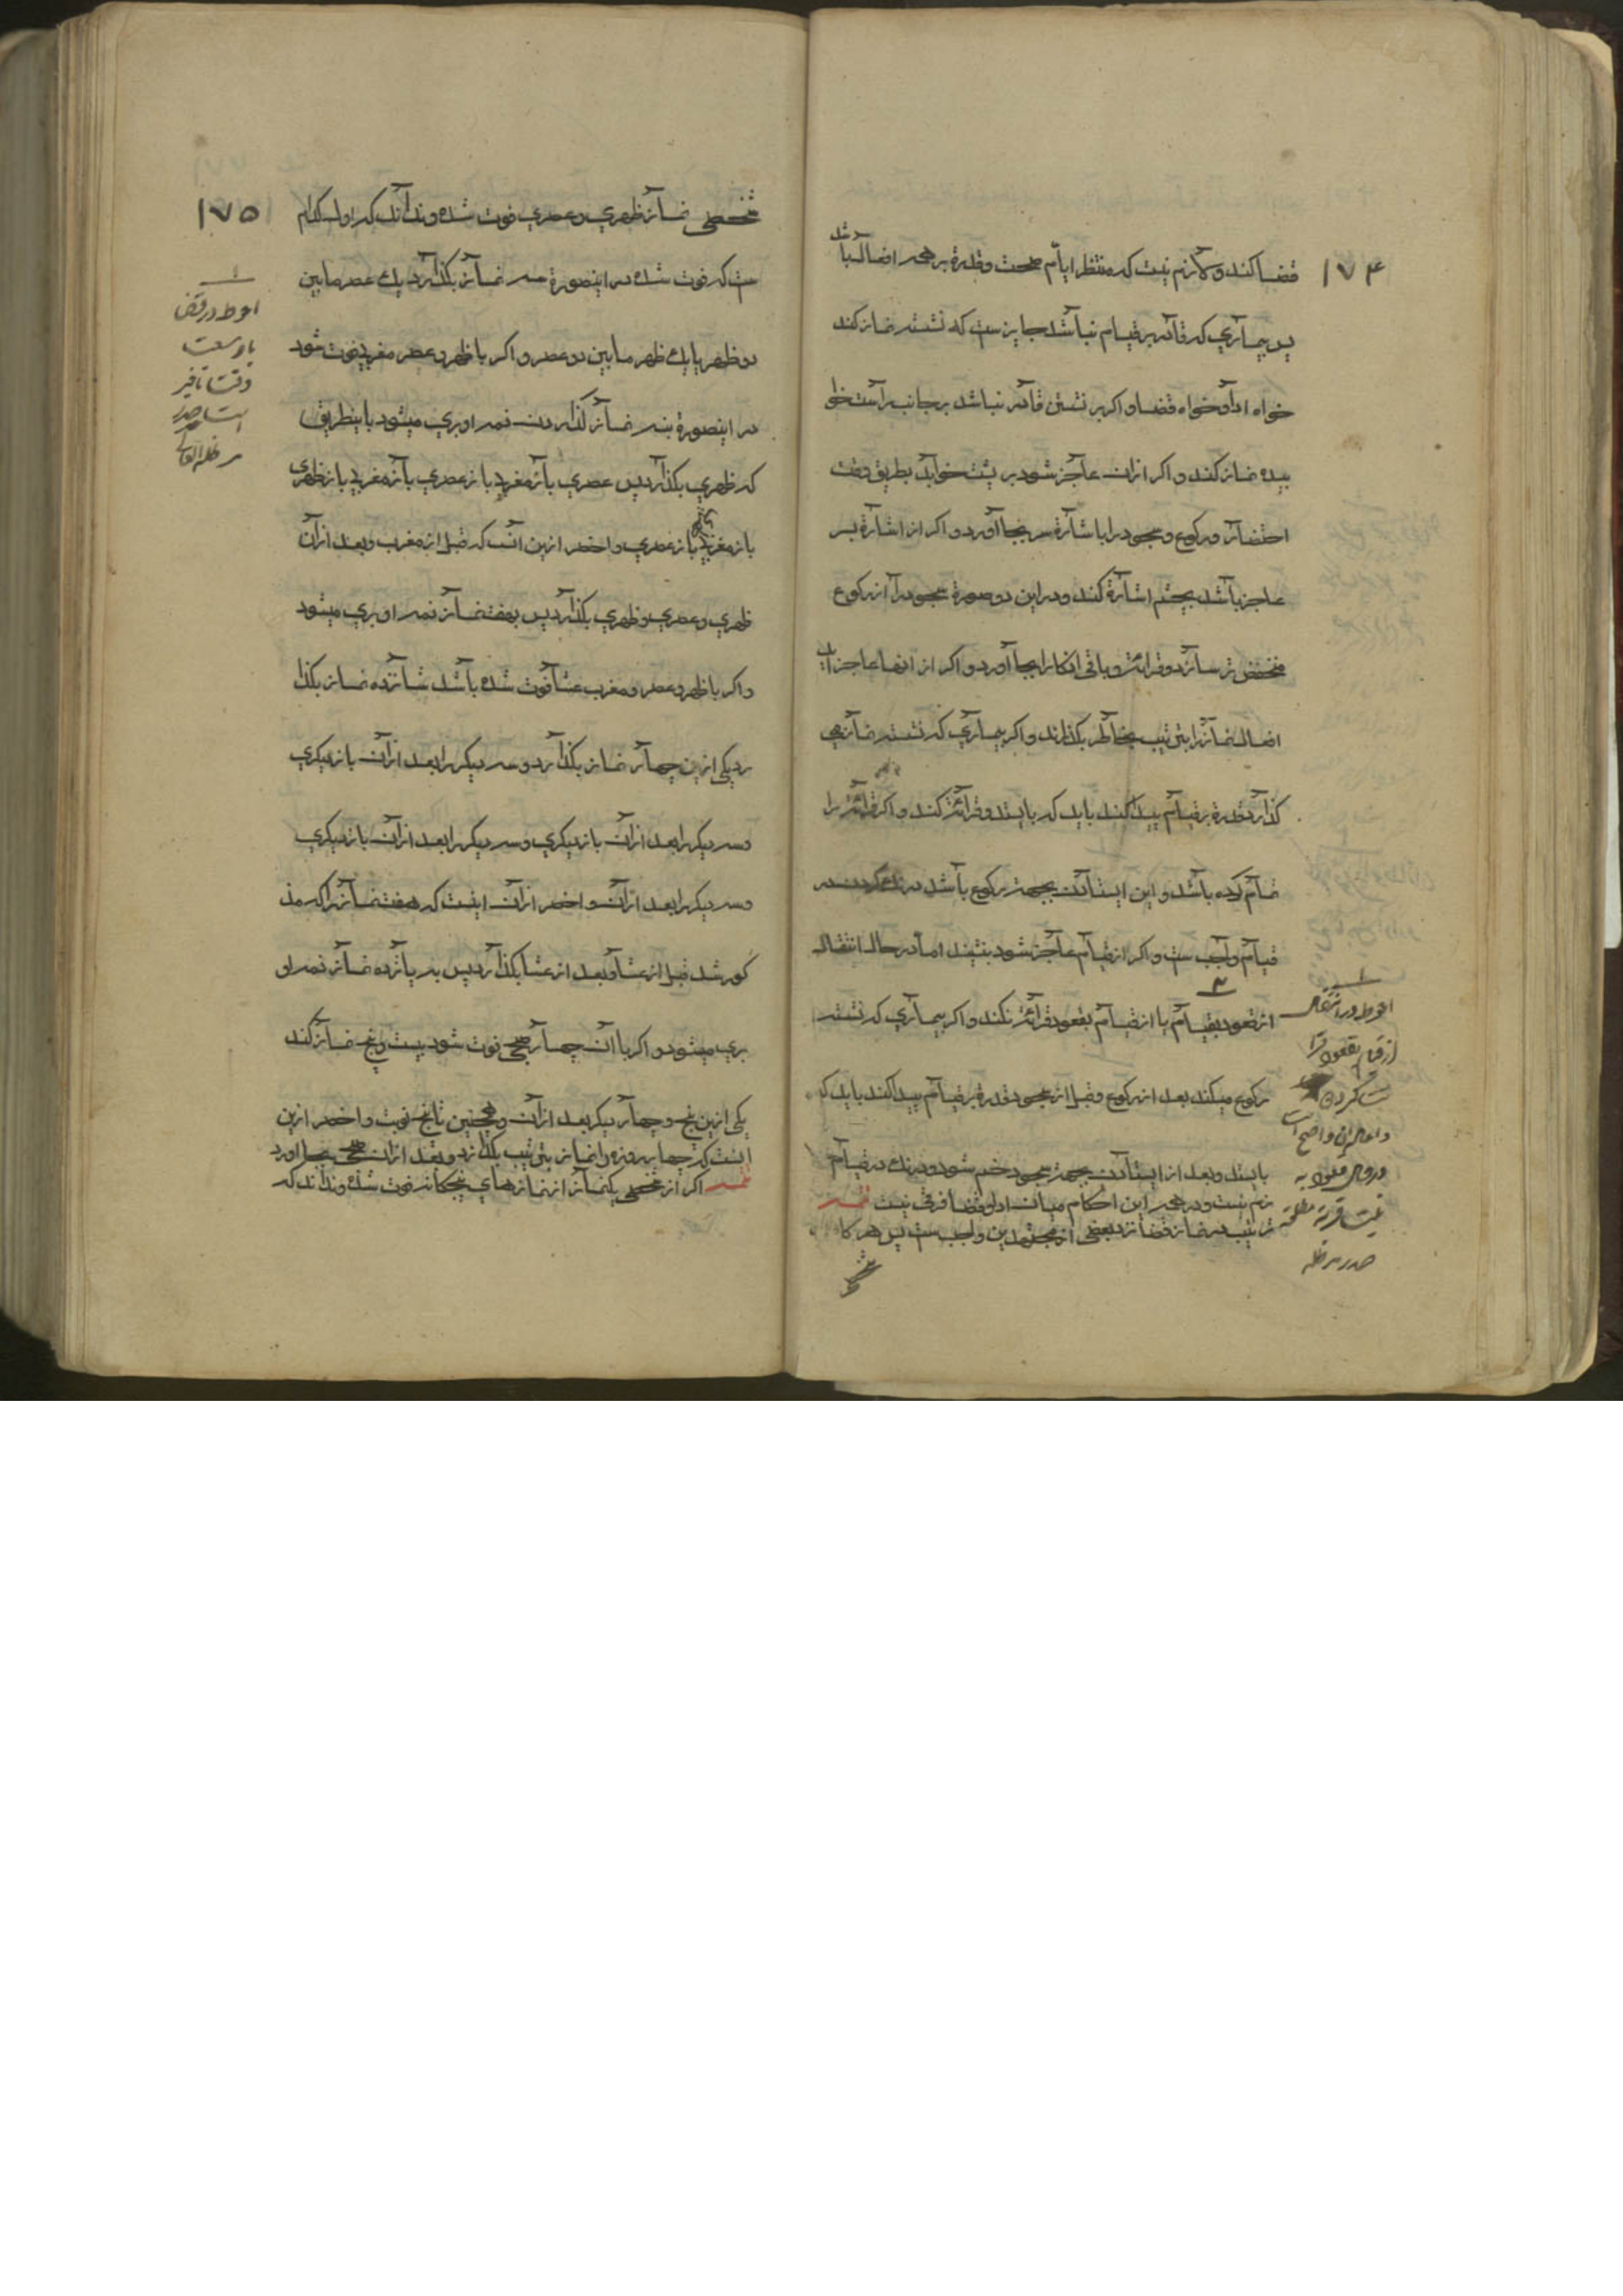 ۱۷۴
قضا کند و لازم نیست که منتظر ایام صحت و قدرة بر همه افعال باشد
پس بیماری که قادر بر قیام نباشد جایزست که نشسته نماز کند
خواه ادا و خواه قضا و اکر بر نشستن قادر نباشد بر جانب راست خوا
بیده نماز کند و اکر ازان عاجز شود بر پشت خوابد بطریق وقت
احتضار و رکوع و سجود را باشارة سر بجا آورد و اکر از اشارة بسر
عاجز باشد بچشم اشارة کند و در این دو صورة سجود را از رکوع
منخفض تر سازد و قرائة و باقی اذکار را بجا آورد و اکر از انها عاجز اید
افعال نماز را بترتیب بخاطر بکذراند و اکر بیماری که نشسته نماز می
کذارد قدرة بر قیام پیدا کند باید که بایستد و قرائة کند و اکر قرائة را
تمام کرده باشد و این ایستادن بجهة رکوع باشد درنك کردن در
قیام واجب ست و اکر از قیام عاجز شود بنشیند اما در حال انتقال
از قعود بقیام یا از قیام بقعود قرائة نکند و اکر بیماری که نشسته
رکوع میکند بعد از رکوع و قبل از سجود قدرة بر قیام پیدا کند باید که
بایستد و بعد از ایستادن بجهة سجود خم شود و درنك در قیام لا
زم نیست و در همه این احکام میان ادا و قضا فرقی نیست تتمه
ترتیب در نماز قضا نزد بعضی از مجتهدین واجب ست پس هرکاه
احوط در انتقال
از قیام بقعود قرا
ئت کردن
صدر مد ظله
۱۷۵
شخصی نماز ظهری و عصری فوت شده و نداند که اول کدام
ست که فوت شده در اینصورة سه نماز بکذارد یك عصر مابین
دو ظهر یا یك ظهر مابین دو عصر و اکر با ظهر و عصر مغربی فوت شود
در اینصورة بنه نماز کذاردن ذمه او بری میشود باینطریق
که ظهری بکذارد پس عصری باز مغربی باز عصری باز مغربی باز ظهری
باز مغربی باز عصری و اخصر ازین انست که قبل از مغرب و بعد ازان
ظهری و عصری و ظهری بکذارد پس بهفت نماز ذمه او بری میشود
و اکر با ظهر و عصر و مغرب عشا فوت شده باشد شانزده نماز بکذا
رد یکی ازین چهار نماز بکذارد و سه دیکر را بعد ازان باز دیکری
و سه دیکر را بعد ازان باز دیکری و سه دیکر را بعد ازان باز دیکری
و سه دیکر را بعد ازان و اخصر ازان اینست که هفت نماز را که مذ
کور شد قبل از عشا و بعد از عشا بکذارد پس به پانزده نماز ذمه او
بری میشود و اکر با ان چهار صبحی فوت شود بیست و پنج نماز کند
یکی ازین پنج و چهار دیکر بعد ازان و همچنین تا پنج نوبت و اخصر ازین
اینست که چهار روزه را نماز بترتیب بکذارد و بعد ازان صبحی بجا اورد
تتمه اکر از شخصی یکنماز از نمازهای پنجکانه فوت شده و نداند که
احوط در قضا
با وسعت
وقت تاخیر
است صدر
مد ظله العالی